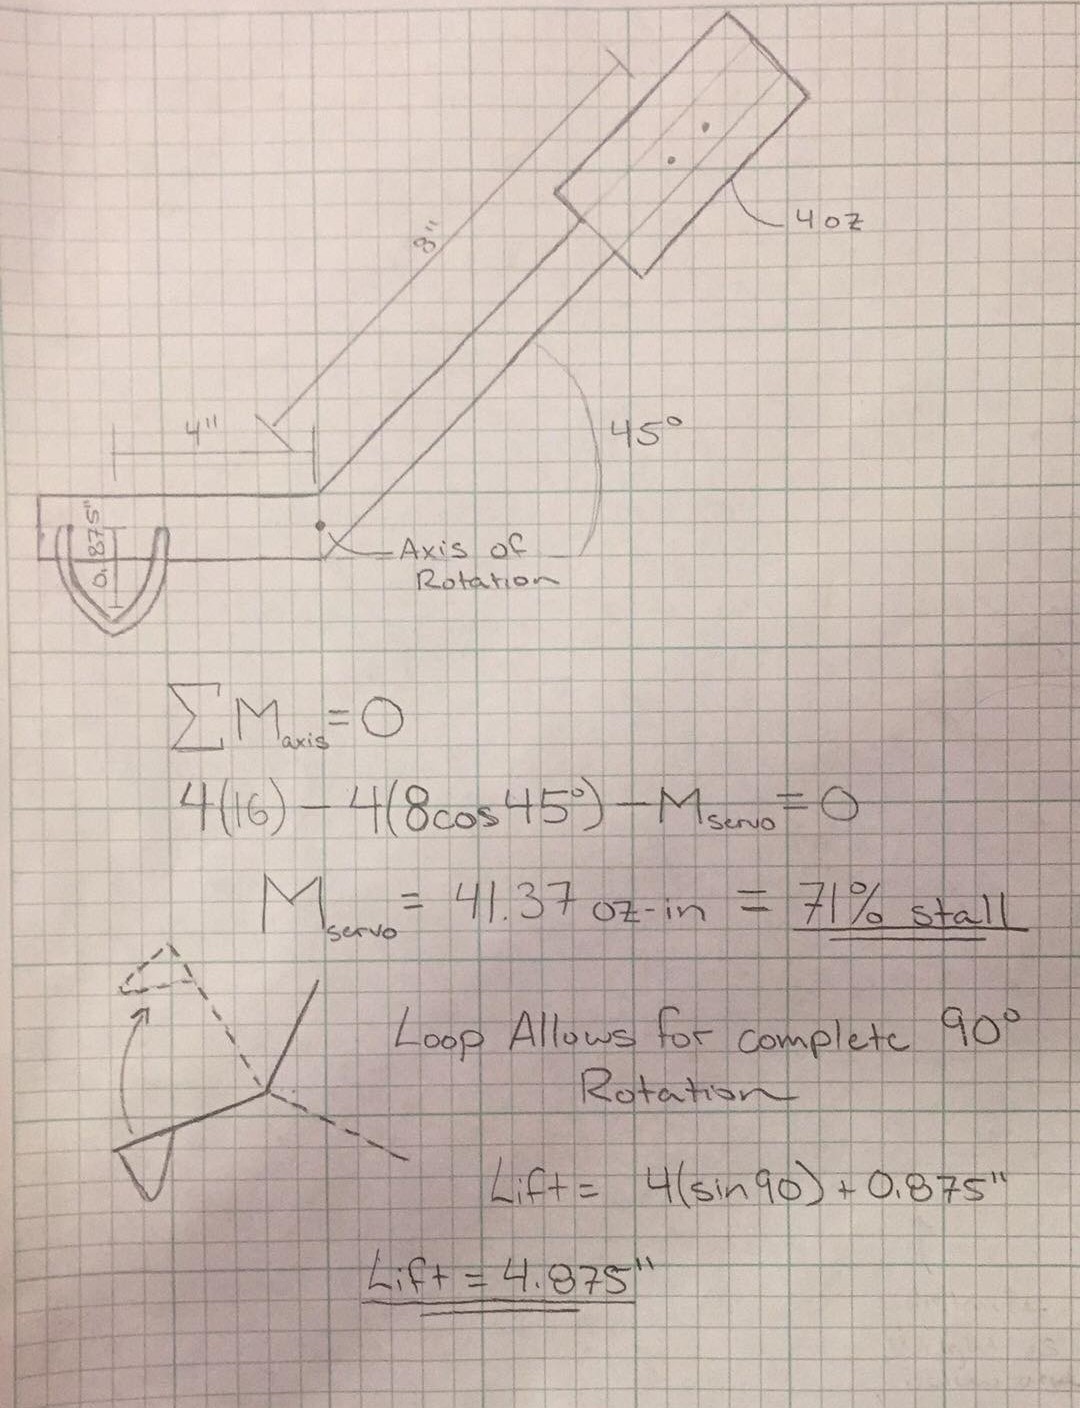 8"
4oz
4"
45°
0.875"
Axis of
Rotation
ΣMaxis = 0
4(16) - 4(8cos45°) - Mservo = 0
Mservo = 41.37 oz-in = 71% stall
Loop Allows for complete 90°
Rotation
Lift = 4(sin90) + 0.875"
Lift = 4.875"